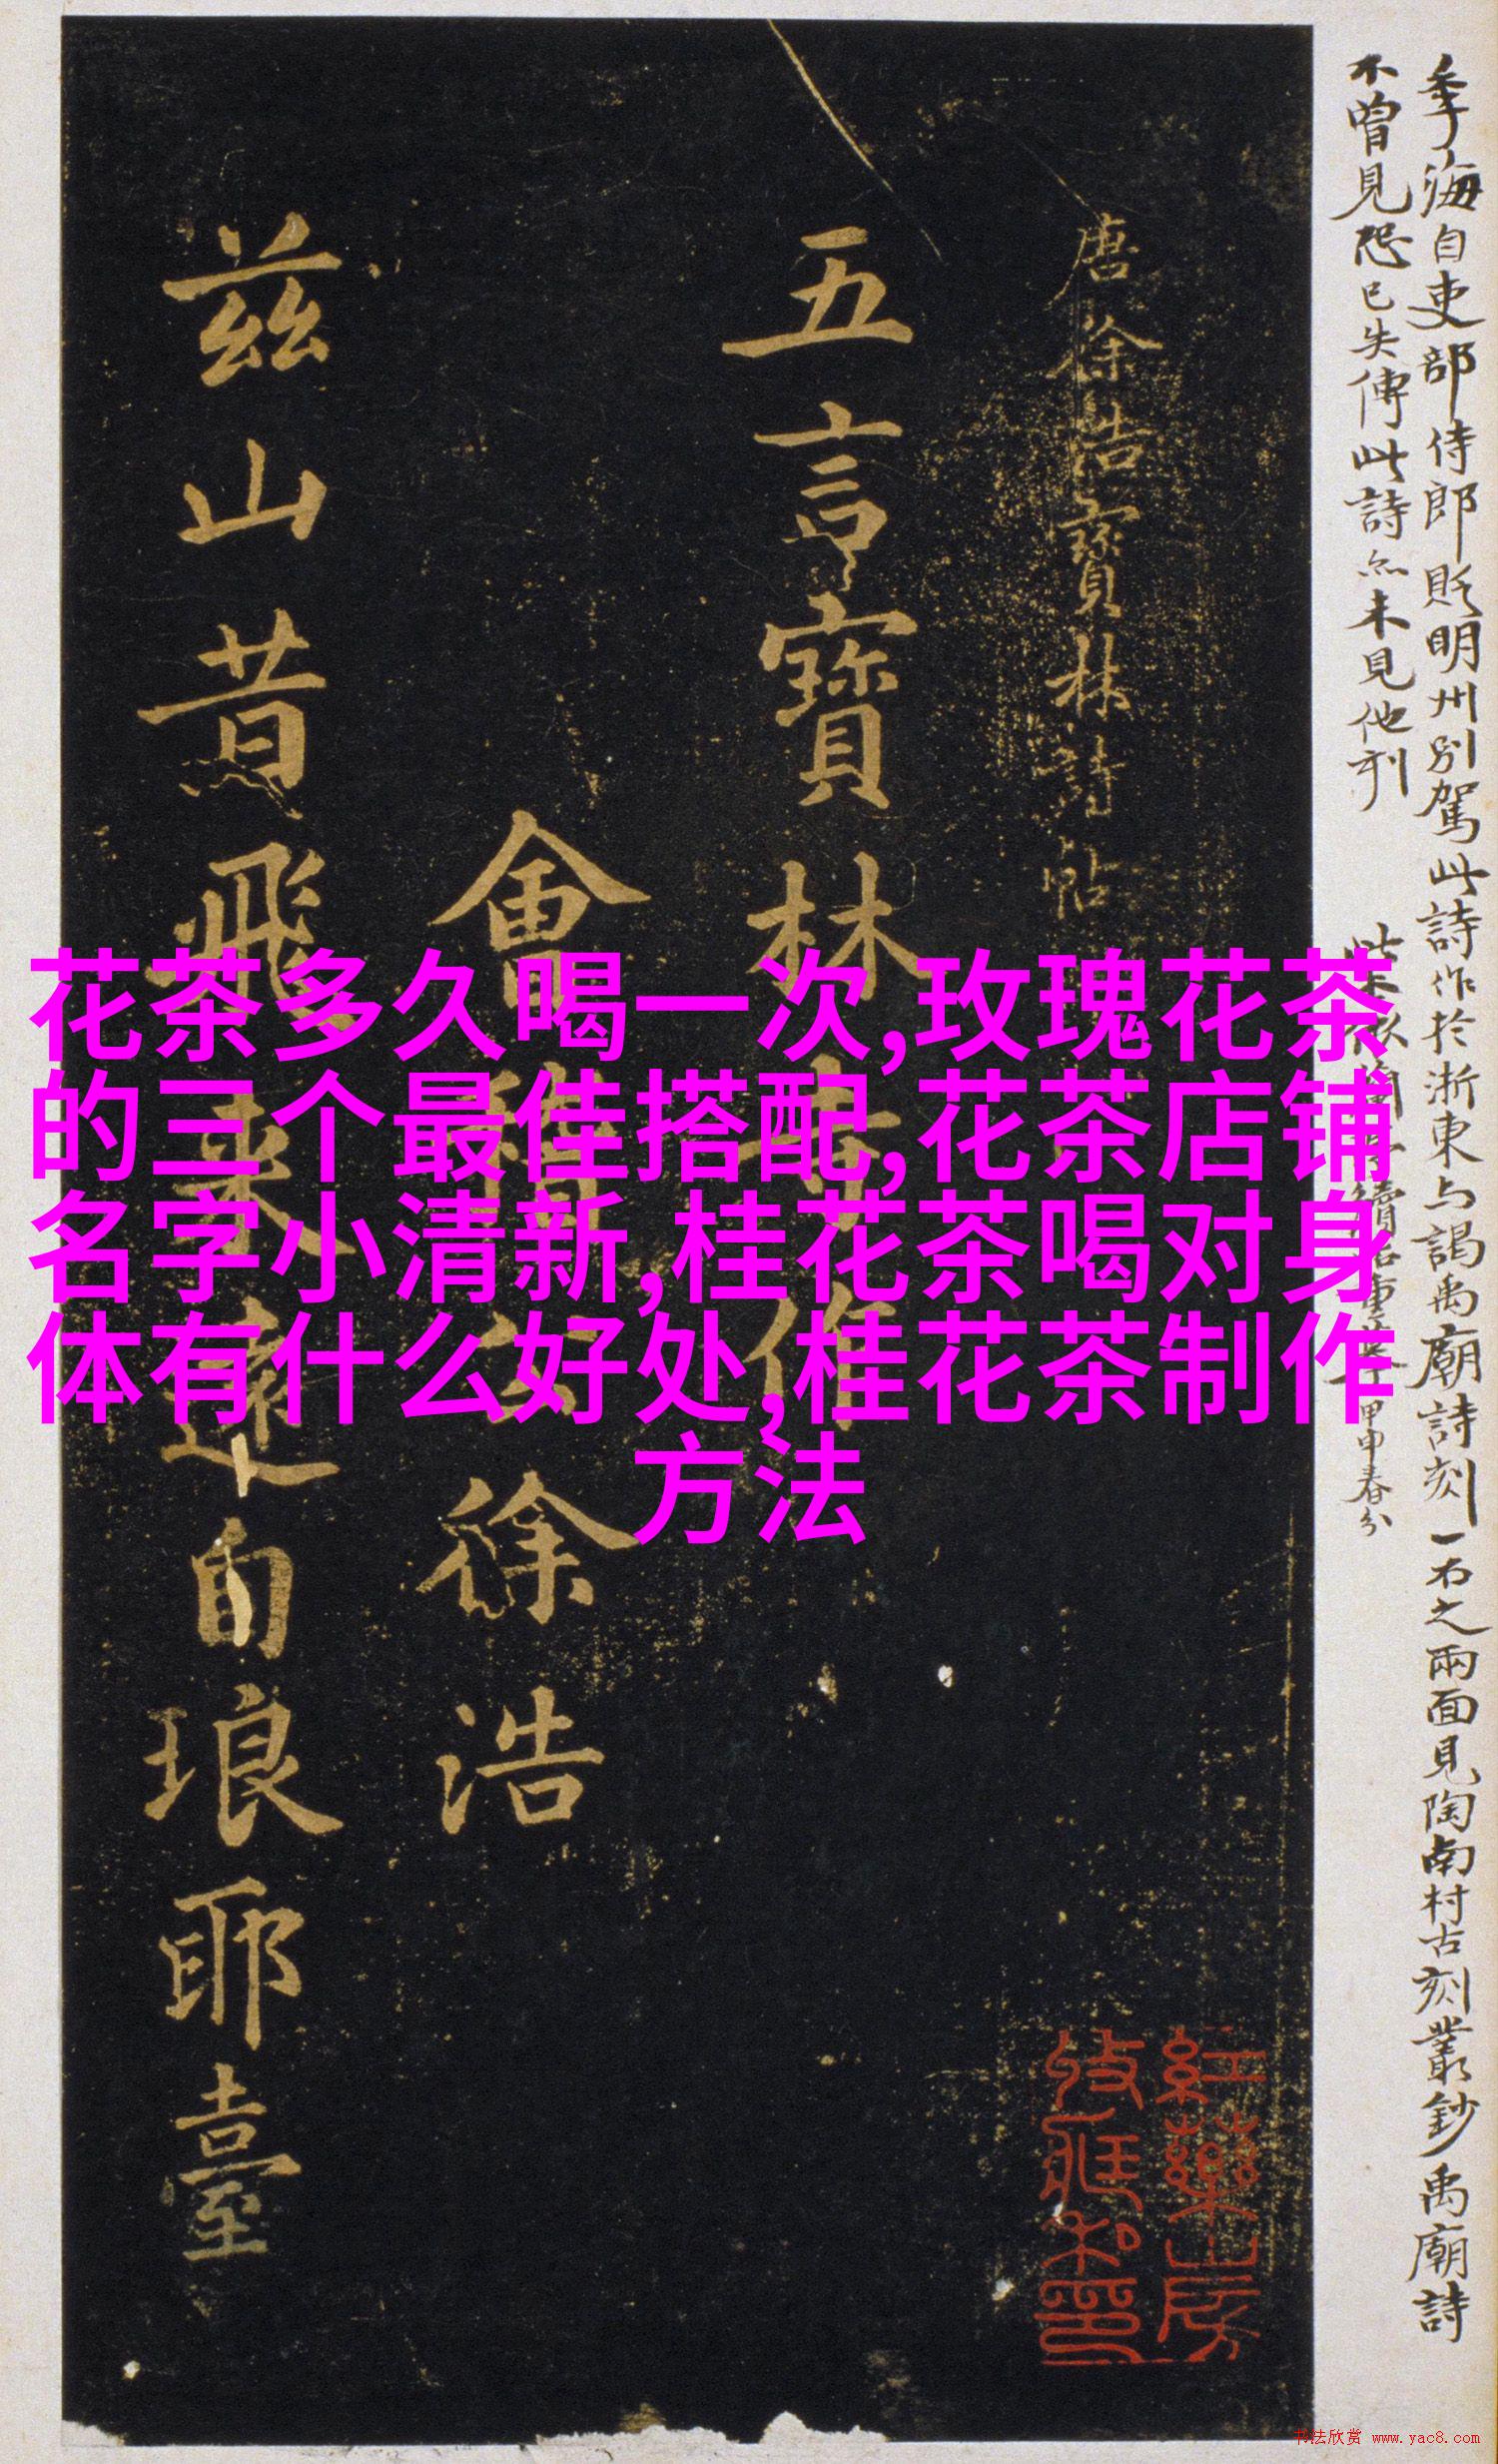 季海自吏部侍郎貶明州別駕此詩作於浙東与謁禹廟詩刻一石之兩面見陶南村古刻叢鈔禹廟詩
不曾見恐已失傳此詩亦未見他刊
甲申春分
唐徐浩寶林詩帖
五言寶林寺作
會稽公徐浩
茲山昔飛來遠自琅耶臺
花茶多久喝一次,玫瑰花茶
的三个最佳搭配,花茶店铺
名字小清新,桂花茶喝对身
体有什么好处,桂花茶制作
方法
紅藥山房
收藏私印
书法欣赏 www.yac8.com